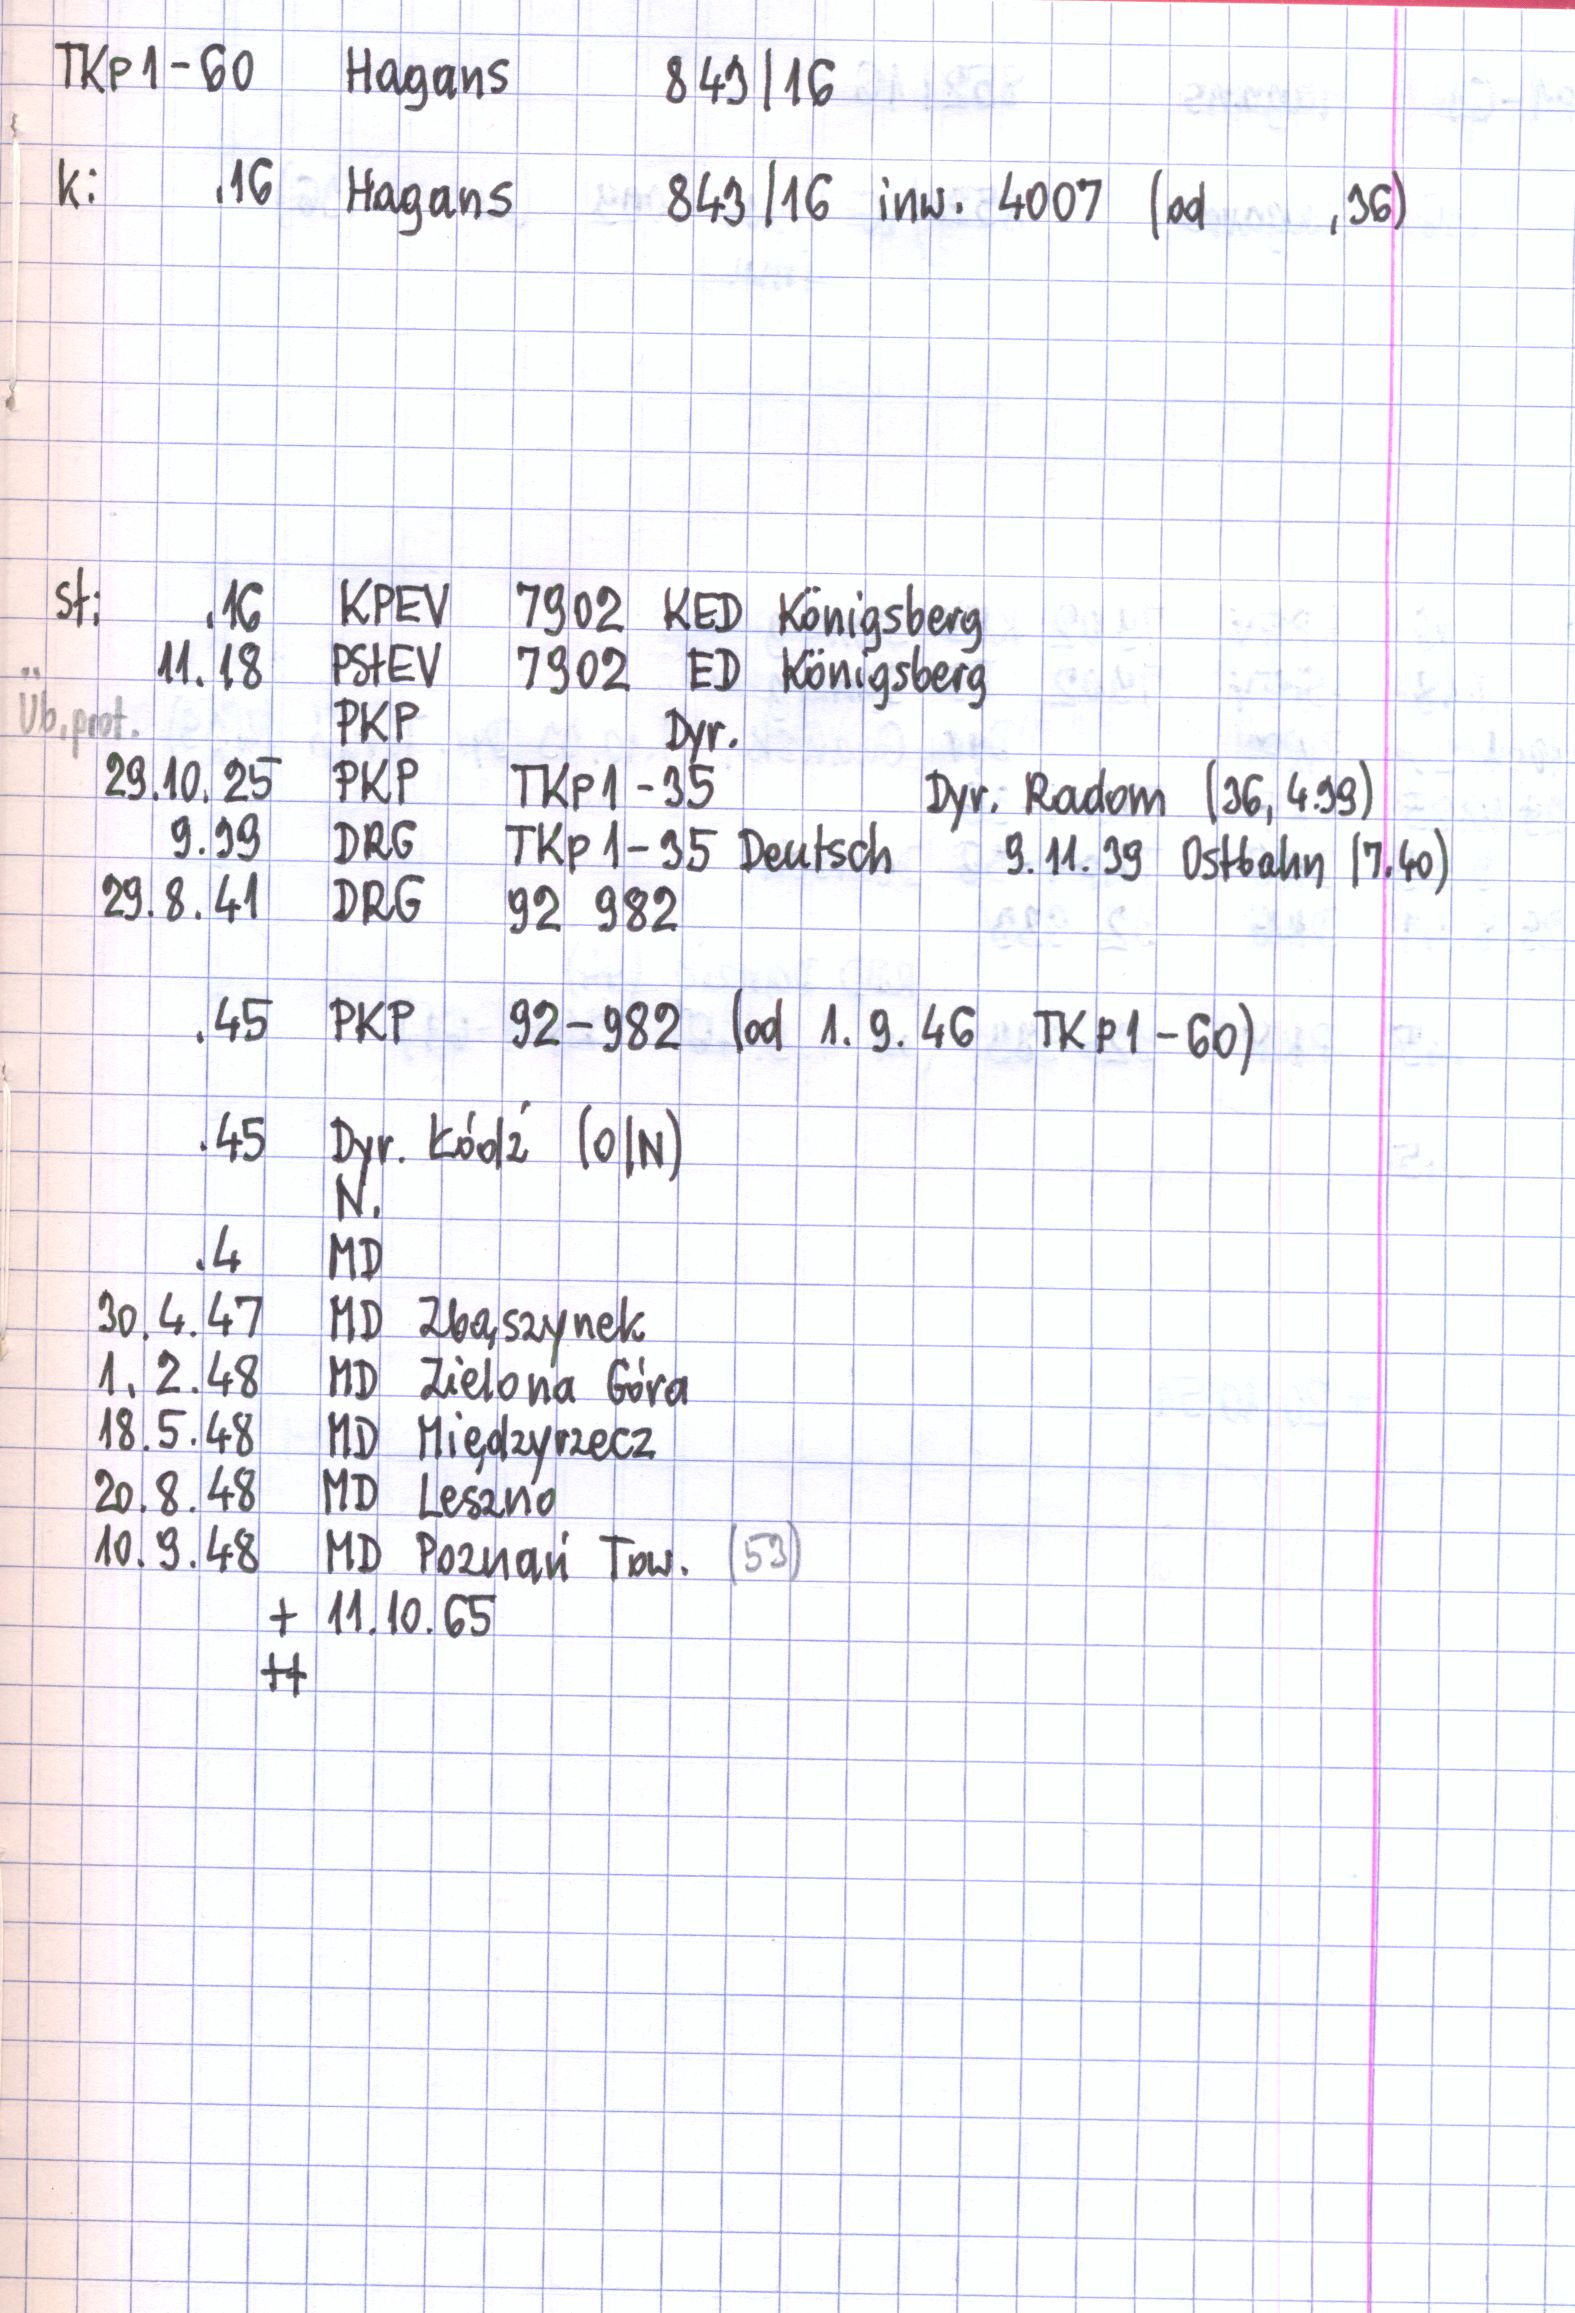 TKp1-60 Hagans 843/16
k: .16 Hagans 843/16 inw. 4007 (od .36)
st: .16 KPEV 7902 KED Königsberg
11.18 PStEV 7902 ED Königsberg
Üb.prot. PKP Dyr.
29.10.25 PKP TKp1-35 Dyr. Radom (36, 4.39)
9.39 DRG TKp1-35 Deutsch 9.11.39 Ostbahn (7.40)
29.8.41 DRG 92 982
.45 PKP 92-982 (od 1.9.46 TKp1-60)
.45 Dyr. Łódź (O/N)
N.
.4 MD
30.4.47 MD Zbąszynek
1.2.48 MD Zielona Góra
18.5.48 MD Międzyrzecz
20.8.48 MD Leszno
10.9.48 MD Poznań Tow. (53)
+ 11.10.65
++